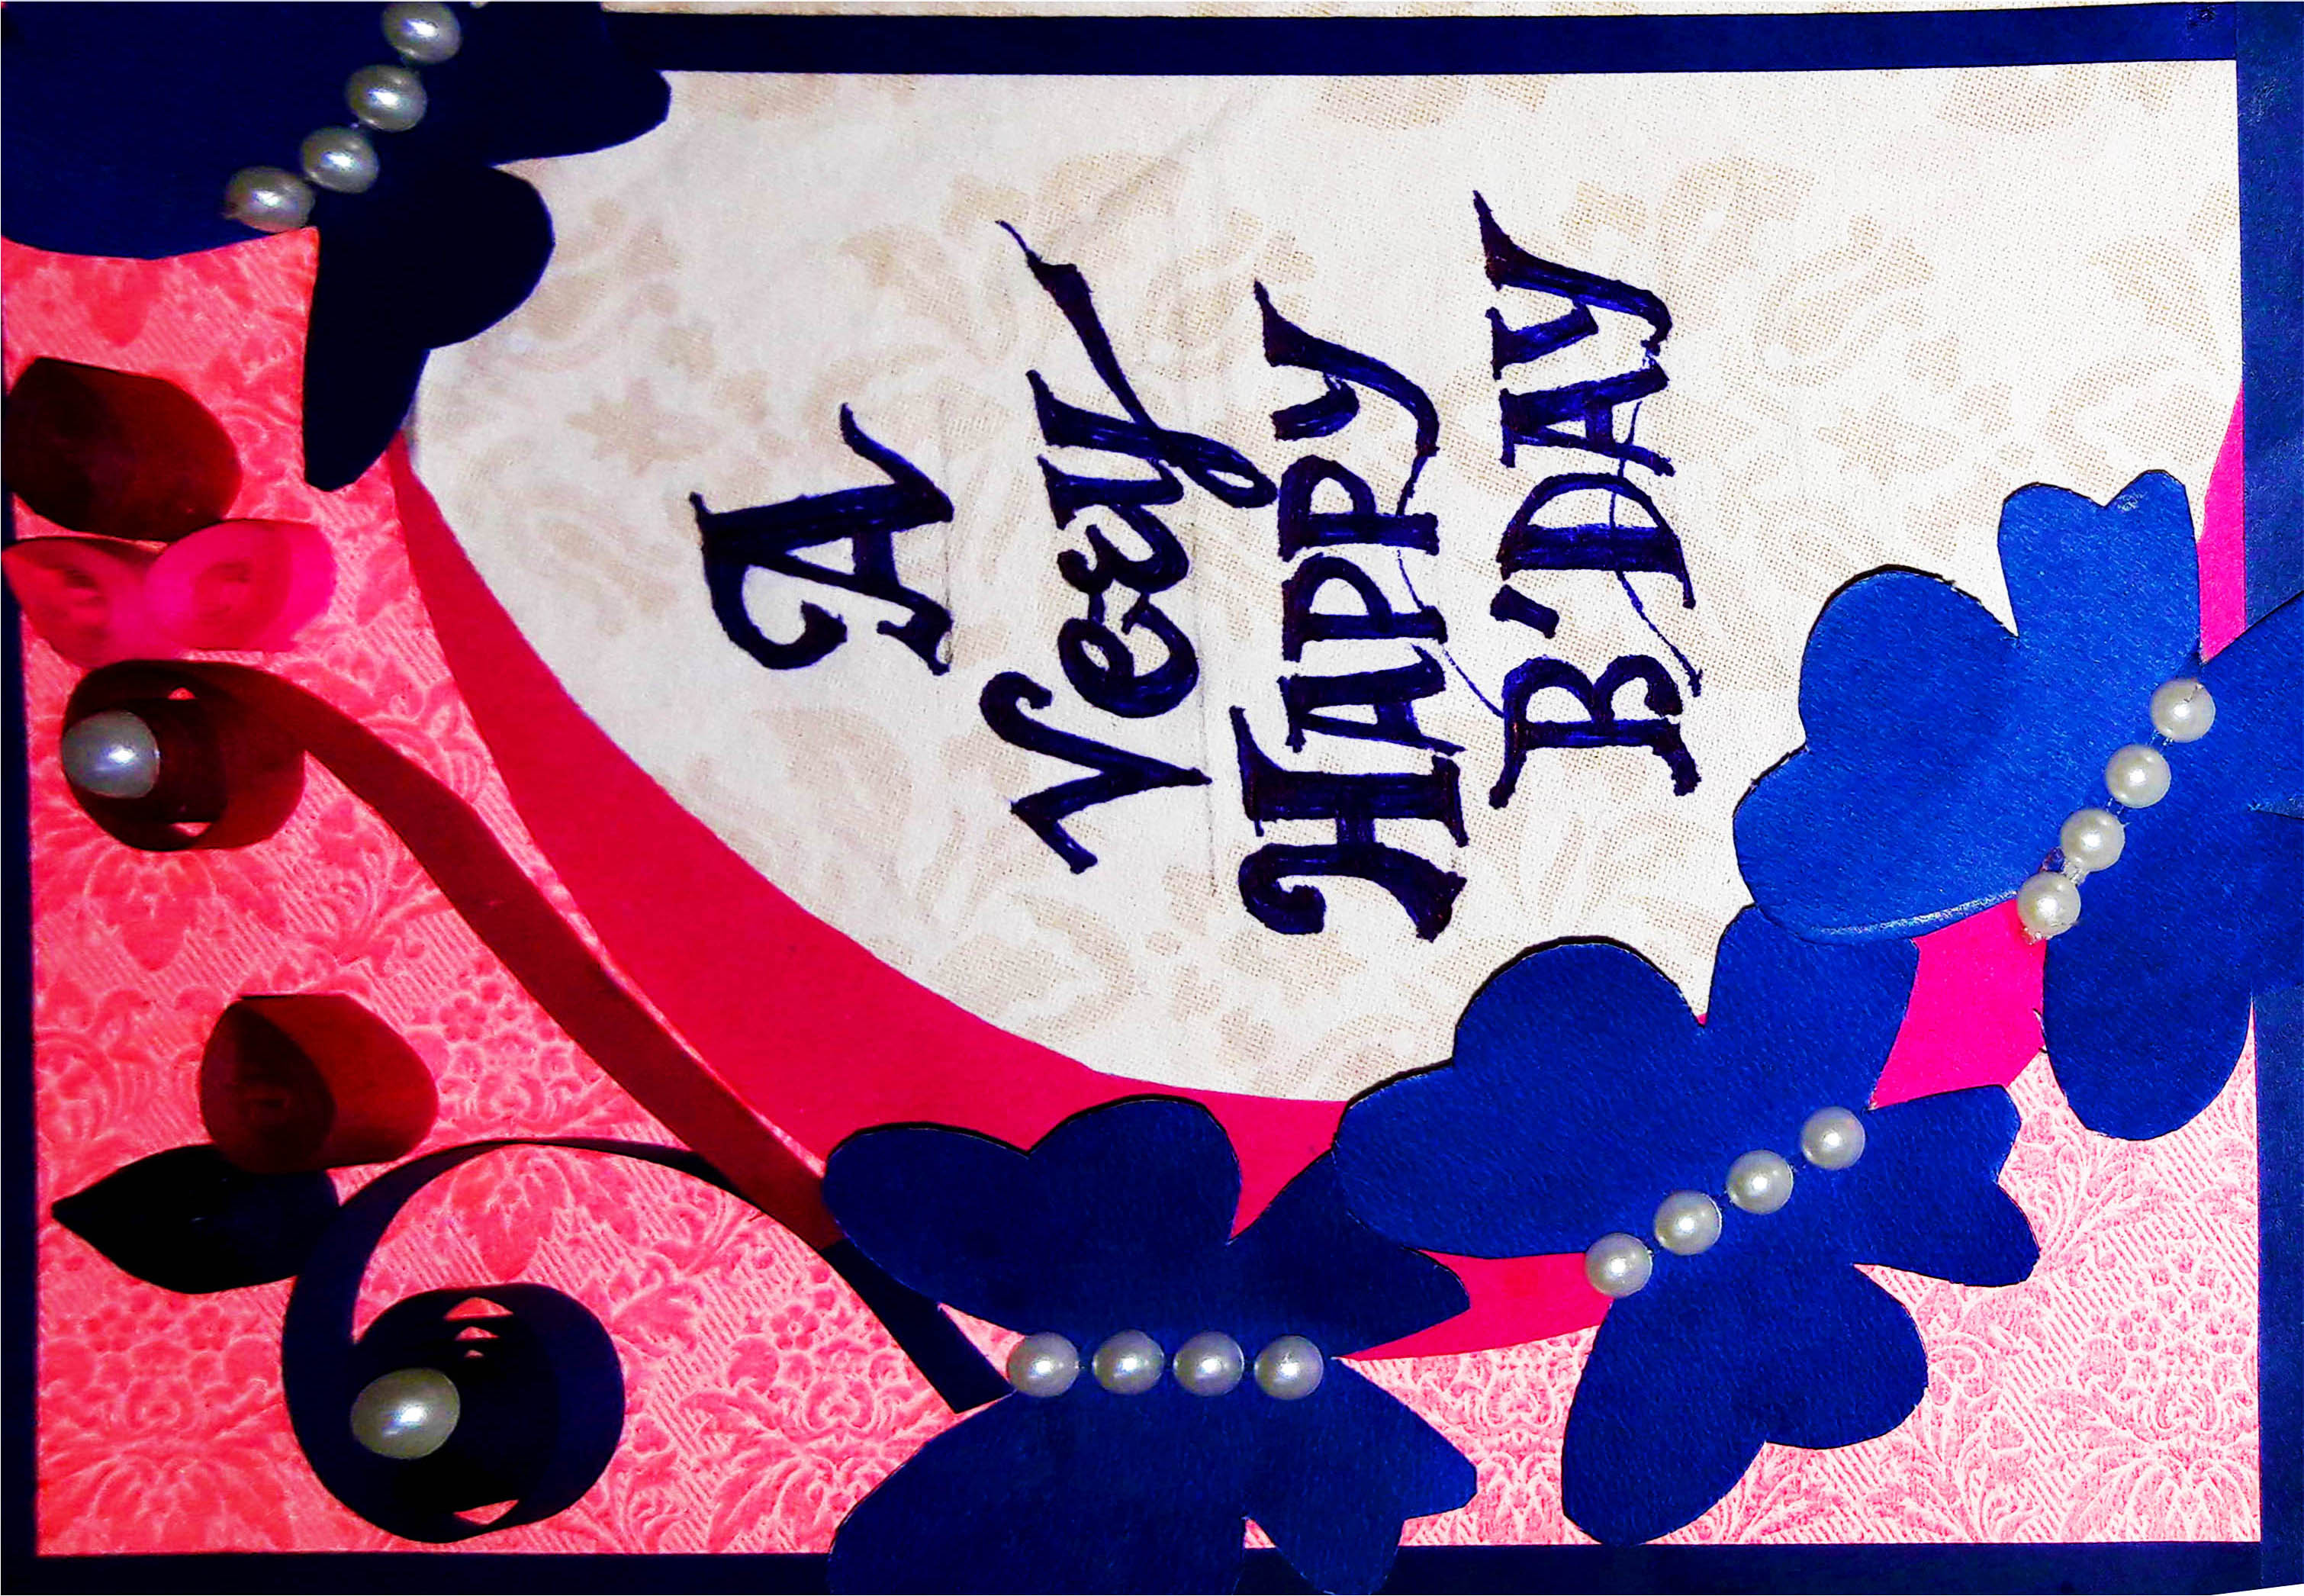 A
Very
HAPPY
B'DAY